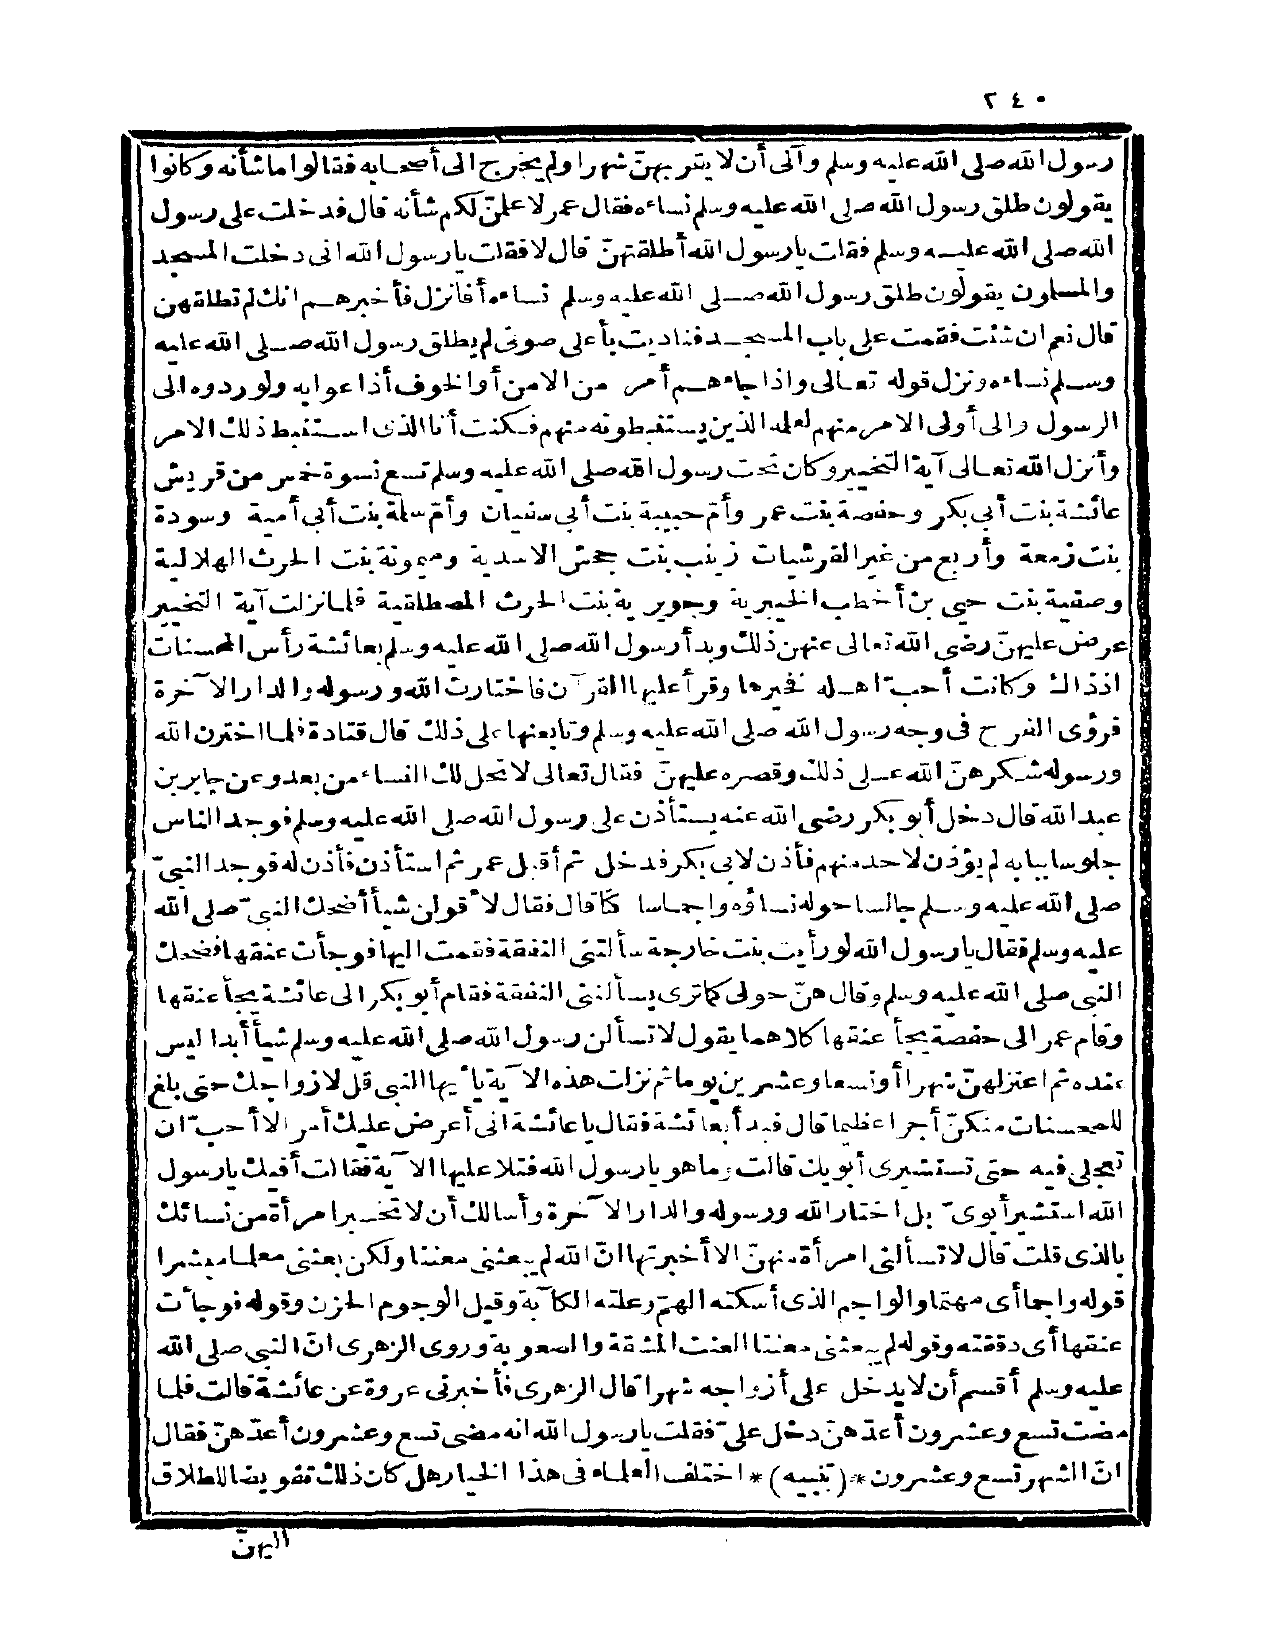 ٢٤٠
رسول الله صلى الله عليه وسلم وآلى أن لا يقربهنّ شهرا ولم يخرج الى أصحابه فقالوا ما شأنه وكانوا
يقولون طلق رسول الله صلى الله عليه وسلم نساءه فقال عمر لاعلمنّ لكم شأنه قال فدخلت على رسول
الله صلى الله عليه وسلم فقلت يا رسول الله أطلقتهنّ قال لا فقلت يا رسول الله انى دخلت المسجد
والمسلمون يقولون طلق رسول الله صلى الله عليه وسلم نساءه أفأنزل فأخبرهم انك لم تطلقهن
قال نعم ان شئت فقمت على باب المسجد فناديت بأعلى صوتى لم يطلق رسول الله صلى الله عليه
وسلم نساءه ونزل قوله تعالى واذا جاءهم أمر من الامن أو الخوف أذاعوا به ولو ردوه الى
الرسول والى أولى الامر منهم لعلمه الذين يستنبطونه منهم فكنت أنا الذى استنبط ذلك الامر
وأنزل الله تعالى آية التخيير وكان تحت رسول الله صلى الله عليه وسلم تسع نسوة خمس من قريش
عائشة بنت أبى بكر وحفصة بنت عمر وأم حبيبة بنت أبى سفيان وأم سلمة بنت أبى أمية وسودة
بنت زمعة وأربع من غير القرشيات زينب بنت جحش الاسدية وميمونة بنت الحرث الهلالية
وصفية بنت حيى بن أخطب الخيبرية وجويرية بنت الحرث المصطلقية فلما نزلت آية التخيير
عرض عليهنّ رضى الله تعالى عنهن ذلك وبدأ رسول الله صلى الله عليه وسلم بعائشة رأس المحسنات
اذ ذاك وكانت أحبّ اهله فخيرها وقرأ عليها القرآن فاختارت الله ورسوله والدار الآخرة
فرؤى الفرح فى وجه رسول الله صلى الله عليه وسلم وتابعنها على ذلك قال قتادة فلما اخترن الله
ورسوله شكرهنّ الله على ذلك وقصره عليهنّ فقال تعالى لا تحل لك النساء من بعد وعن جابر بن
عبد الله قال دخل أبو بكر رضى الله عنه يستأذن على رسول الله صلى الله عليه وسلم فوجد الناس
جلوسا ببابه لم يؤذن لاحد منهم فأذن لابى بكر فدخل ثم أقبل عمر ثم استأذن فأذن له فوجد النبىّ
صلى الله عليه وسلم جالسا حوله نساؤه واجما سا كنا قال فقال لأقولن شيأ أضحك النبىّ صلى الله
عليه وسلم فقال يا رسول الله لو رأيت بنت خارجة سألتنى النفقة فقمت اليها فوجأت عنقها فضحك
النبى صلى الله عليه وسلم وقال هنّ حولى كما ترى يسألننى النفقة فقام أبو بكر الى عائشة يجأ عنقها
وقام عمر الى حفصة يجأ عنقها كلاهما يقول لا تسألن رسول الله صلى الله عليه وسلم شيأ أبدا ليس
عنده ثم اعتزلهنّ شهرا أو تسعا وعشرين يوما ثم نزلت هذه الآية يا أيها النبى قل لازواجك حتى بلغ
للمحسنات منكنّ أجرا عظيما قال فبدأ بعائشة فقال يا عائشة انى أعرض عليك أمرا لا أحبّ ان
تعجلى فيه حتى تستشيرى أبويك قالت وما هو يا رسول الله فتلا عليها الآية فقالت أفيك يا رسول
الله استشير أبوىّ بل اختار الله ورسوله والدار الآخرة وأسالك أن لا تخبر امرأة من نسائك
بالذى قلت قال لا تسألنى امرأة منهنّ الا أخبرتها انّ الله لم يبعثنى معنتا ولكن بعثنى معلما مبشرا
قوله واجما أى مهتما والواجم الذى أسكته الهمّ وعلته الكآبة وقيل الوجوم الحزن وقوله فوجأت
عنقها أى دققته وقوله لم يبعثنى معنتا العنت المشقة والصعوبة وروى الزهرى انّ النبى صلى الله
عليه وسلم أقسم أن لا يدخل على أزواجه شهرا قال الزهرى فأخبرنى عروة عن عائشة قالت فلما
مضت تسع وعشرون أعدّهنّ دخل علىّ فقلت يا رسول الله انه مضى تسع وعشرون أعدّهنّ فقال
انّ الشهر تسع وعشرون *(تنبيه)* اختلف العلماء فى هذا الخيار هل كان ذلك تفويضا للطلاق
اليهنّ